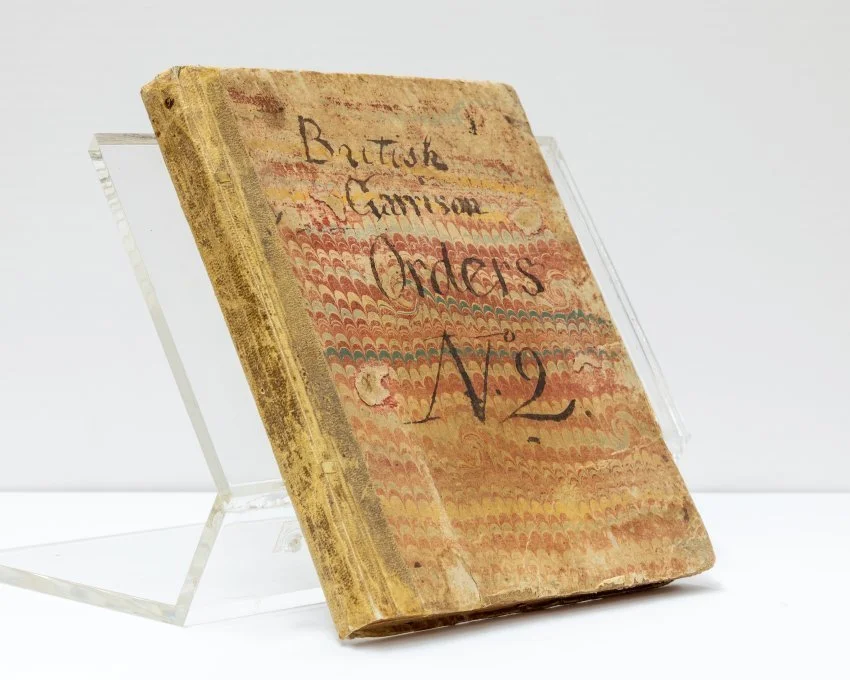 British
Garrison
Orders
N.º 2.